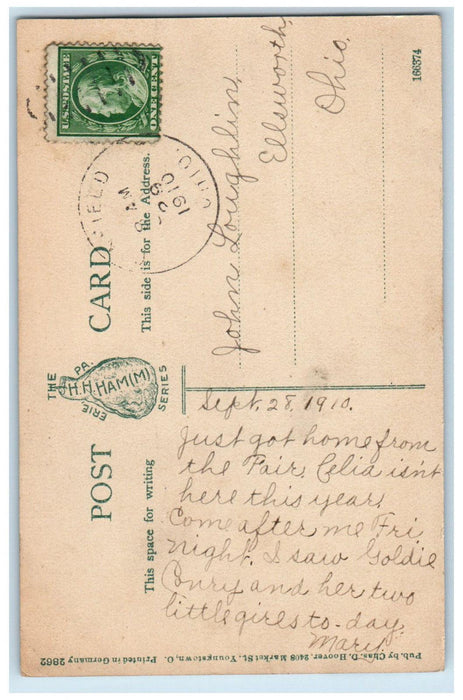 U.S. POSTAGE
ONE CENT
FIELD
OHIO
1910
8 AM
POST CARD
THE H.H. HAM(M) SERIES
ERIE PA.
This space for writing
This side is for the Address.
166374
John Loughlin,
Ellsworth,
Ohio.
Sept. 28, 1910.
Just got home from
the Fair. Celia isn't
here this year.
Come after me Fri.
night. I saw Goldie
and her two
little gires to-day.
Mary.
Pub. by Chas. D. Hoover, 2408 Market St., Youngstown, O. Printed in Germany 2862